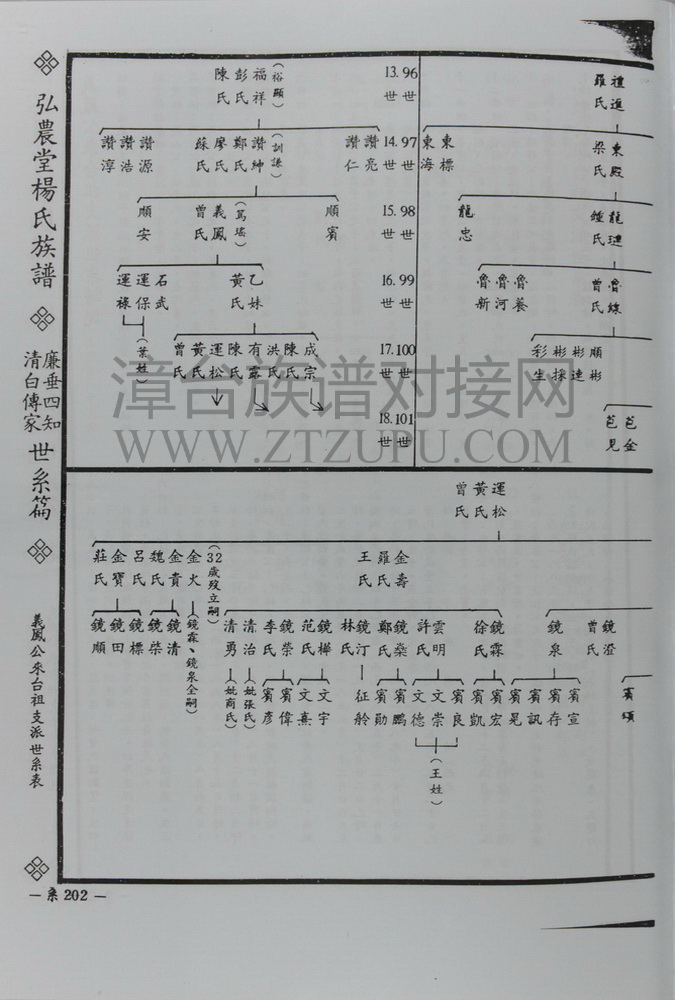 弘農堂楊氏族譜
廉垂四知
清白傳家
世系篇
義鳳公來台祖支派世系表
— 系 202 —
禮進
羅氏
東殿
梁氏
東標
東海
龍璉
鍾氏
龍忠
魯線
曾氏
魯養
魯河
魯新
順彬
彬達
彬採
彩生
芭金
芭見
13. 96
世 世
14. 97
世 世
15. 98
世 世
16. 99
世 世
17. 100
世 世
18. 101
世 世
(裕顯)
福祥
彭氏
陳氏
讚亮
讚仁
(訓謙)
讚紳
鄭氏
廖氏
蘇氏
讚源
讚浩
讚淳
順賓
(篤瑤)
義鳳
曾氏
順安
乙妹
黃氏
石武
運保
運祿
(葉姓)
成宗
陳氏
洪氏
有露
陳氏
運松
黃氏
曾氏
運松
黃氏
曾氏
金壽
羅氏
王氏
(32歲歿立嗣)
金火
金貴
魏氏
呂氏
金寶
莊氏
鏡澄
曾氏
鏡泉
鏡霖
徐氏
雲明
許氏
鏡燊
鄭氏
鏡汀
林氏
鏡樺
范氏
鏡榮
李氏
清治
(妣張氏)
清勇
(妣商氏)
(鏡霖、鏡泉全嗣)
鏡清
鏡榮
鏡標
鏡田
鏡順
賓頌
賓宣
賓存
賓訊
賓晃
賓宏
賓凱
賓良
文崇
文德
(王姓)
賓鵬
賓勛
征舲
文宇
文熹
賓偉
賓彥
漳台族谱对接网
WWW.ZTZUPU.COM